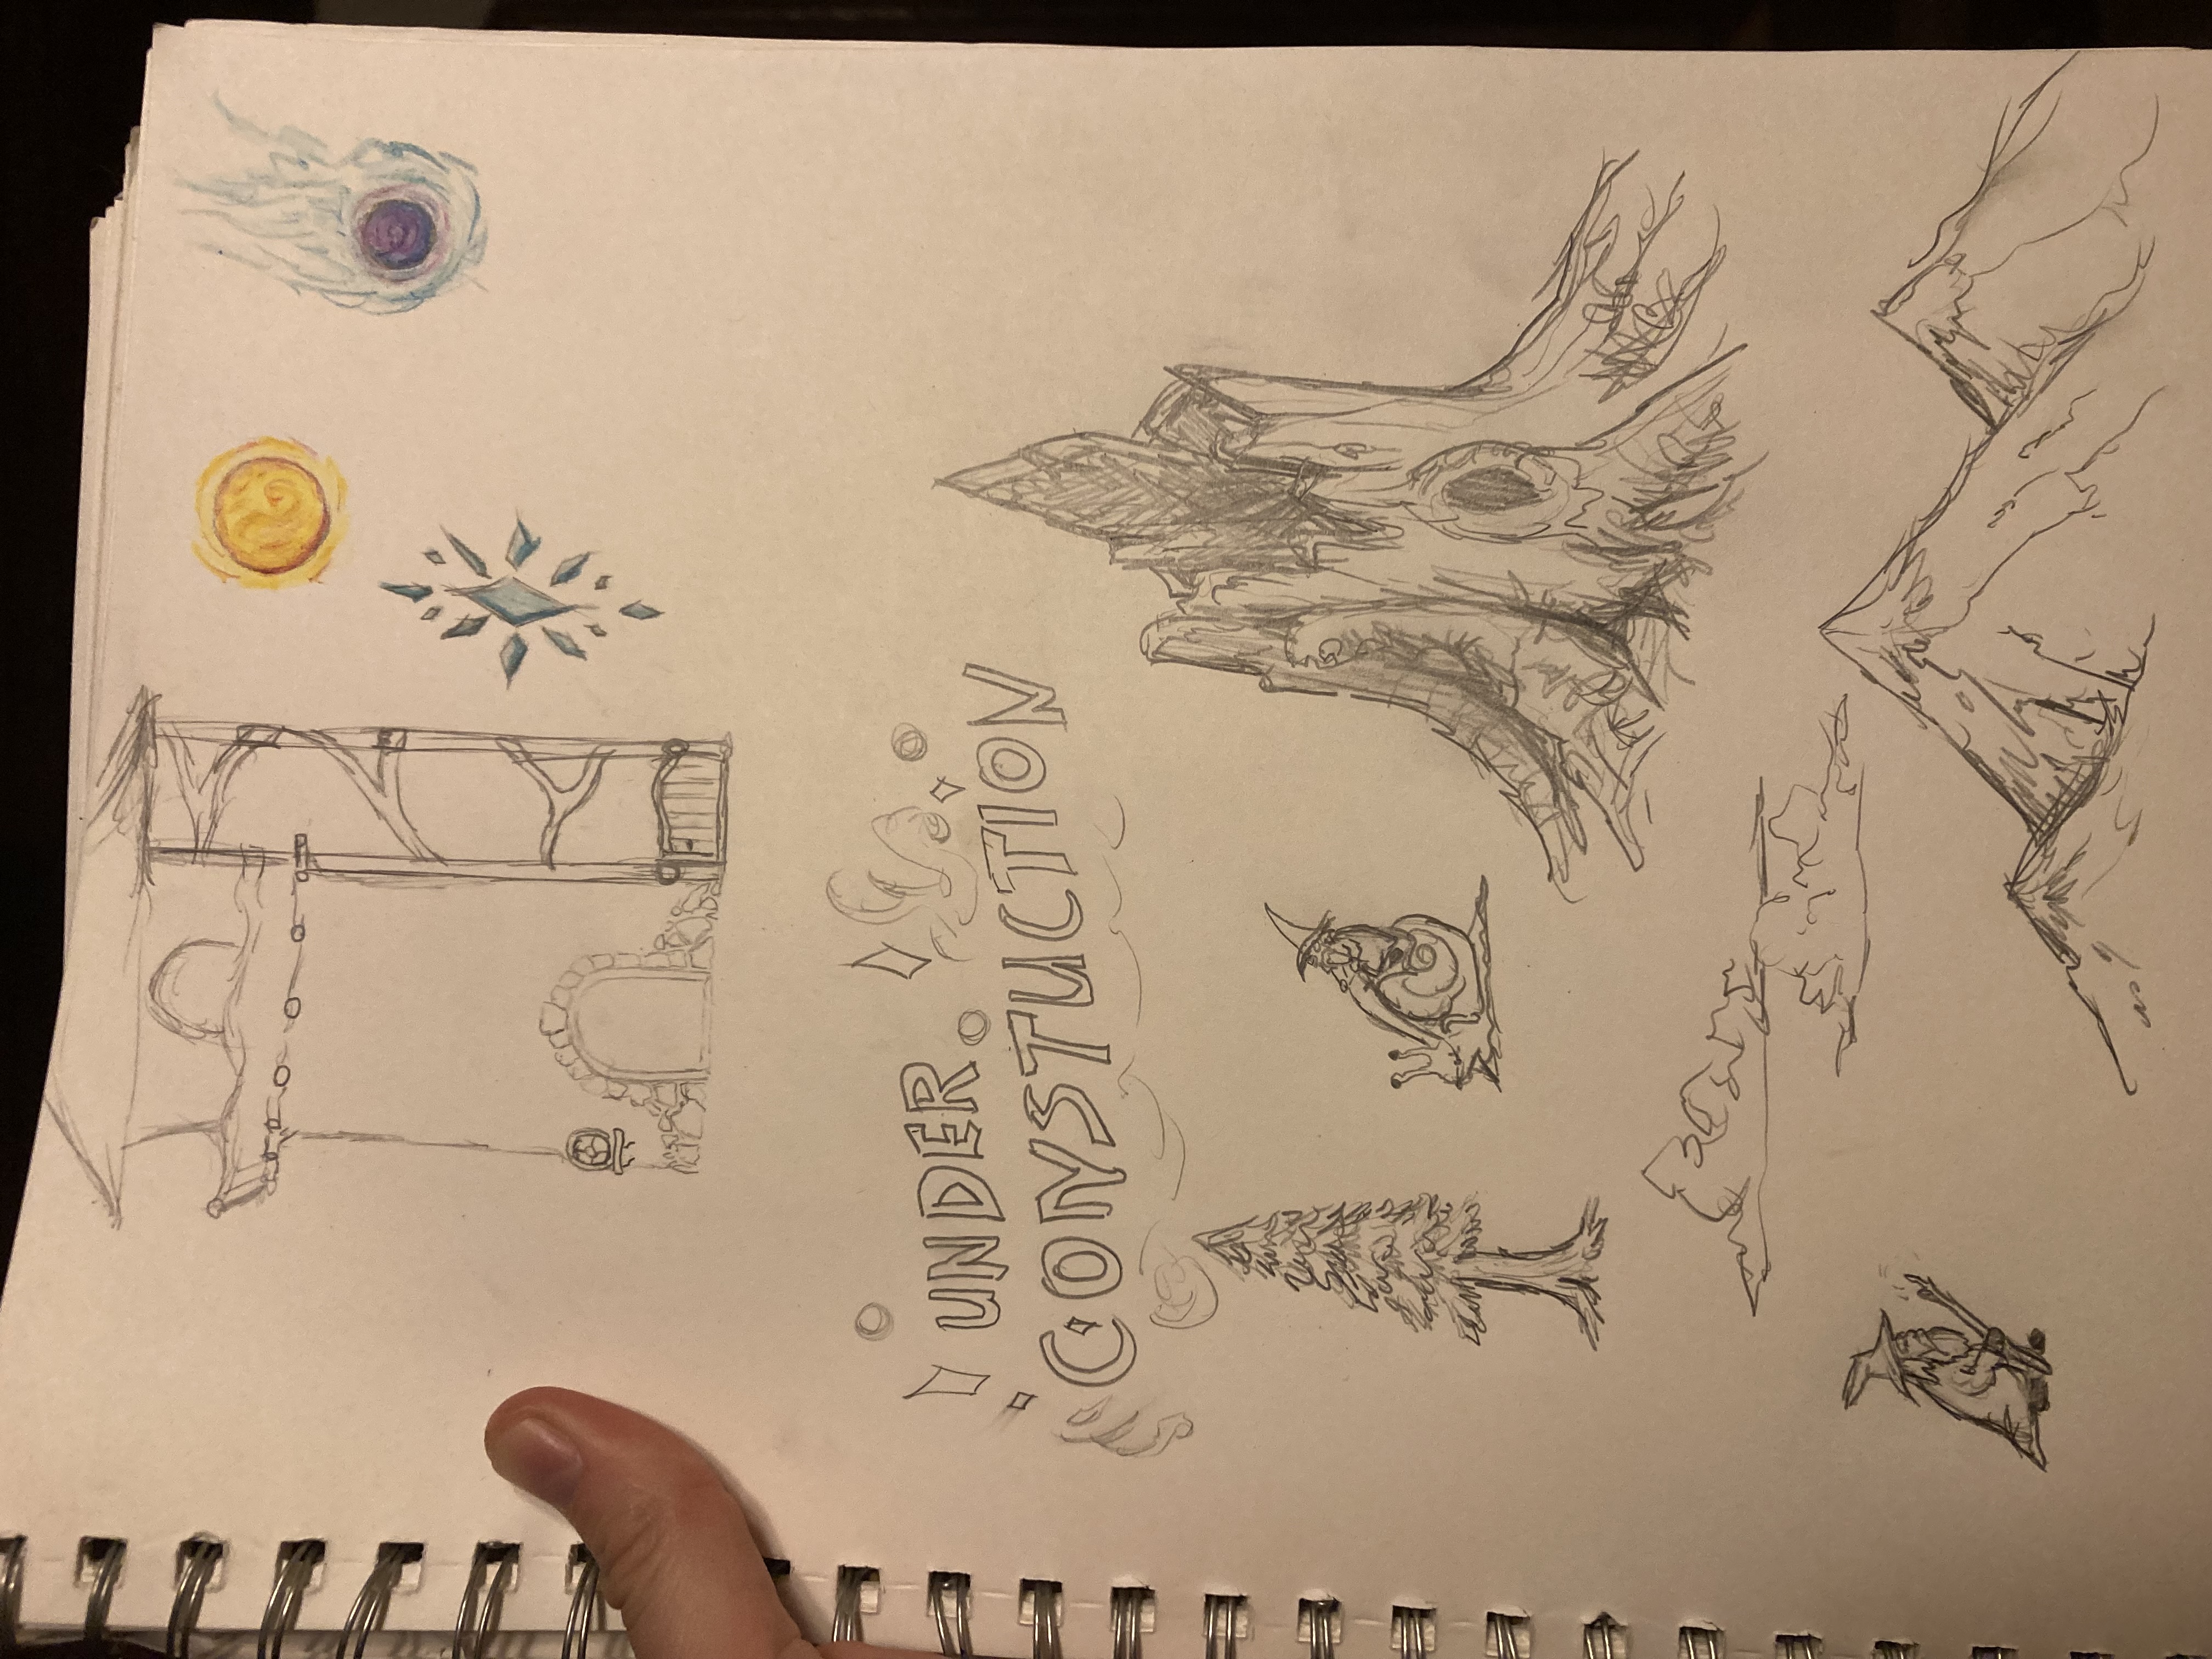 UNDER
CONSTUCTION